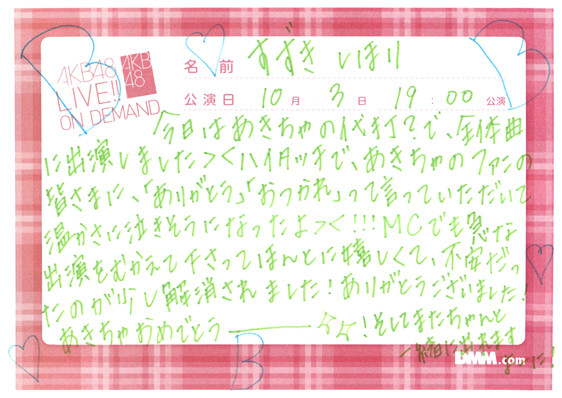 AKB48
LIVE!!
ON DEMAND
AKB
48
名 前 すずき しほり
公演日 10 月 3 日 19 : 00 公演
今日はあきちゃの代打?で、全体曲
に出演しました><ハイタッチで、あきちゃのファンの
皆さまに、「ありがとう」「おつかれ」って言っていただいて
温かさに泣きそうになったよ><!!!MCでも急な
出演をむかえて下さってほんとに嬉しくて、不安だっ
たのが少し解消されました!ありがとうございました!
あきちゃおめでとう――!そしてまたちゃんと
一緒に出れます
ように!
DMM.com
B
B
B